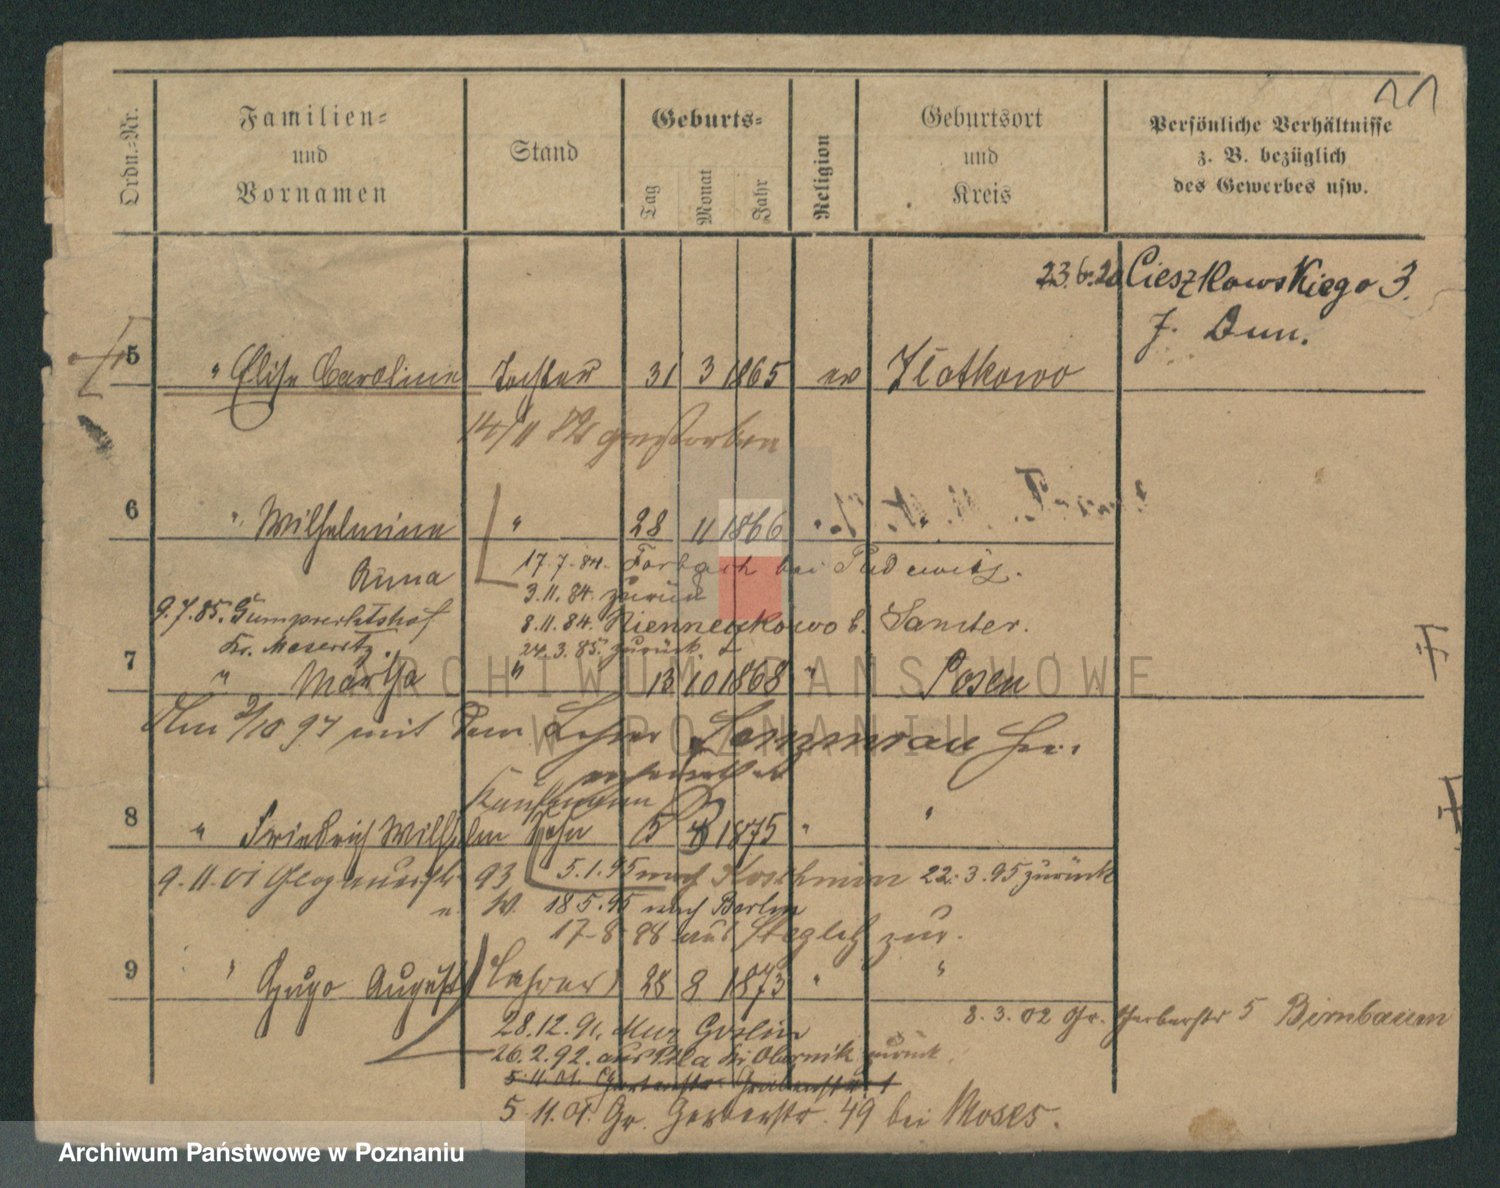 11
Ordn.-Nr.
Familien-
und
Vornamen
Stand
Geburts-
Tag
Monat
Jahr
Religion
Geburtsort
und
Kreis
Persönliche Verhältnisse
z. B. bezüglich
des Gewerbes usw.
23.6.20 Cieszkowskiego 3.
J. Dun.
5 " Elise Caroline Tochter 31 3 1865 ev Zlotkowo
14/11 gestorben
6 " Wilhelmine " 28 11 1866 "
Anna
17.7.84. bei Pudewitz.
3.11.84. zurück
9.7.85. Gumprechtshof
8.11.84. b. Samter.
Kr. Meseritz.
24.3.85. zurück.
7 " Martha " 13 10 1868 " Posen
Am 2/10 97 mit dem Lehrer
verheirathet
Kaufmann
8 " Friedrich Wilhelm Sohn 5 1875 " "
9.11.01 Glogauerstr. 93
5.1.95 nach Koschmin 22.3.95 zurück
18.5.95 nach Berlin
17-8-98 aus Steglitz zur.
9 " Hugo August Lehrer 28 8 1873 " "
8.3.02 Gr. Gerberstr 5 Birnbaum
28.12.91. Mur Goslin
26.2.92. aus Kr. Obornik zurück.
5.11.01. Gr. Gerberstr. 49 bei Moses.
ARCHIWUM PAŃSTWOWE
W POZNANIU
Archiwum Państwowe w Poznaniu